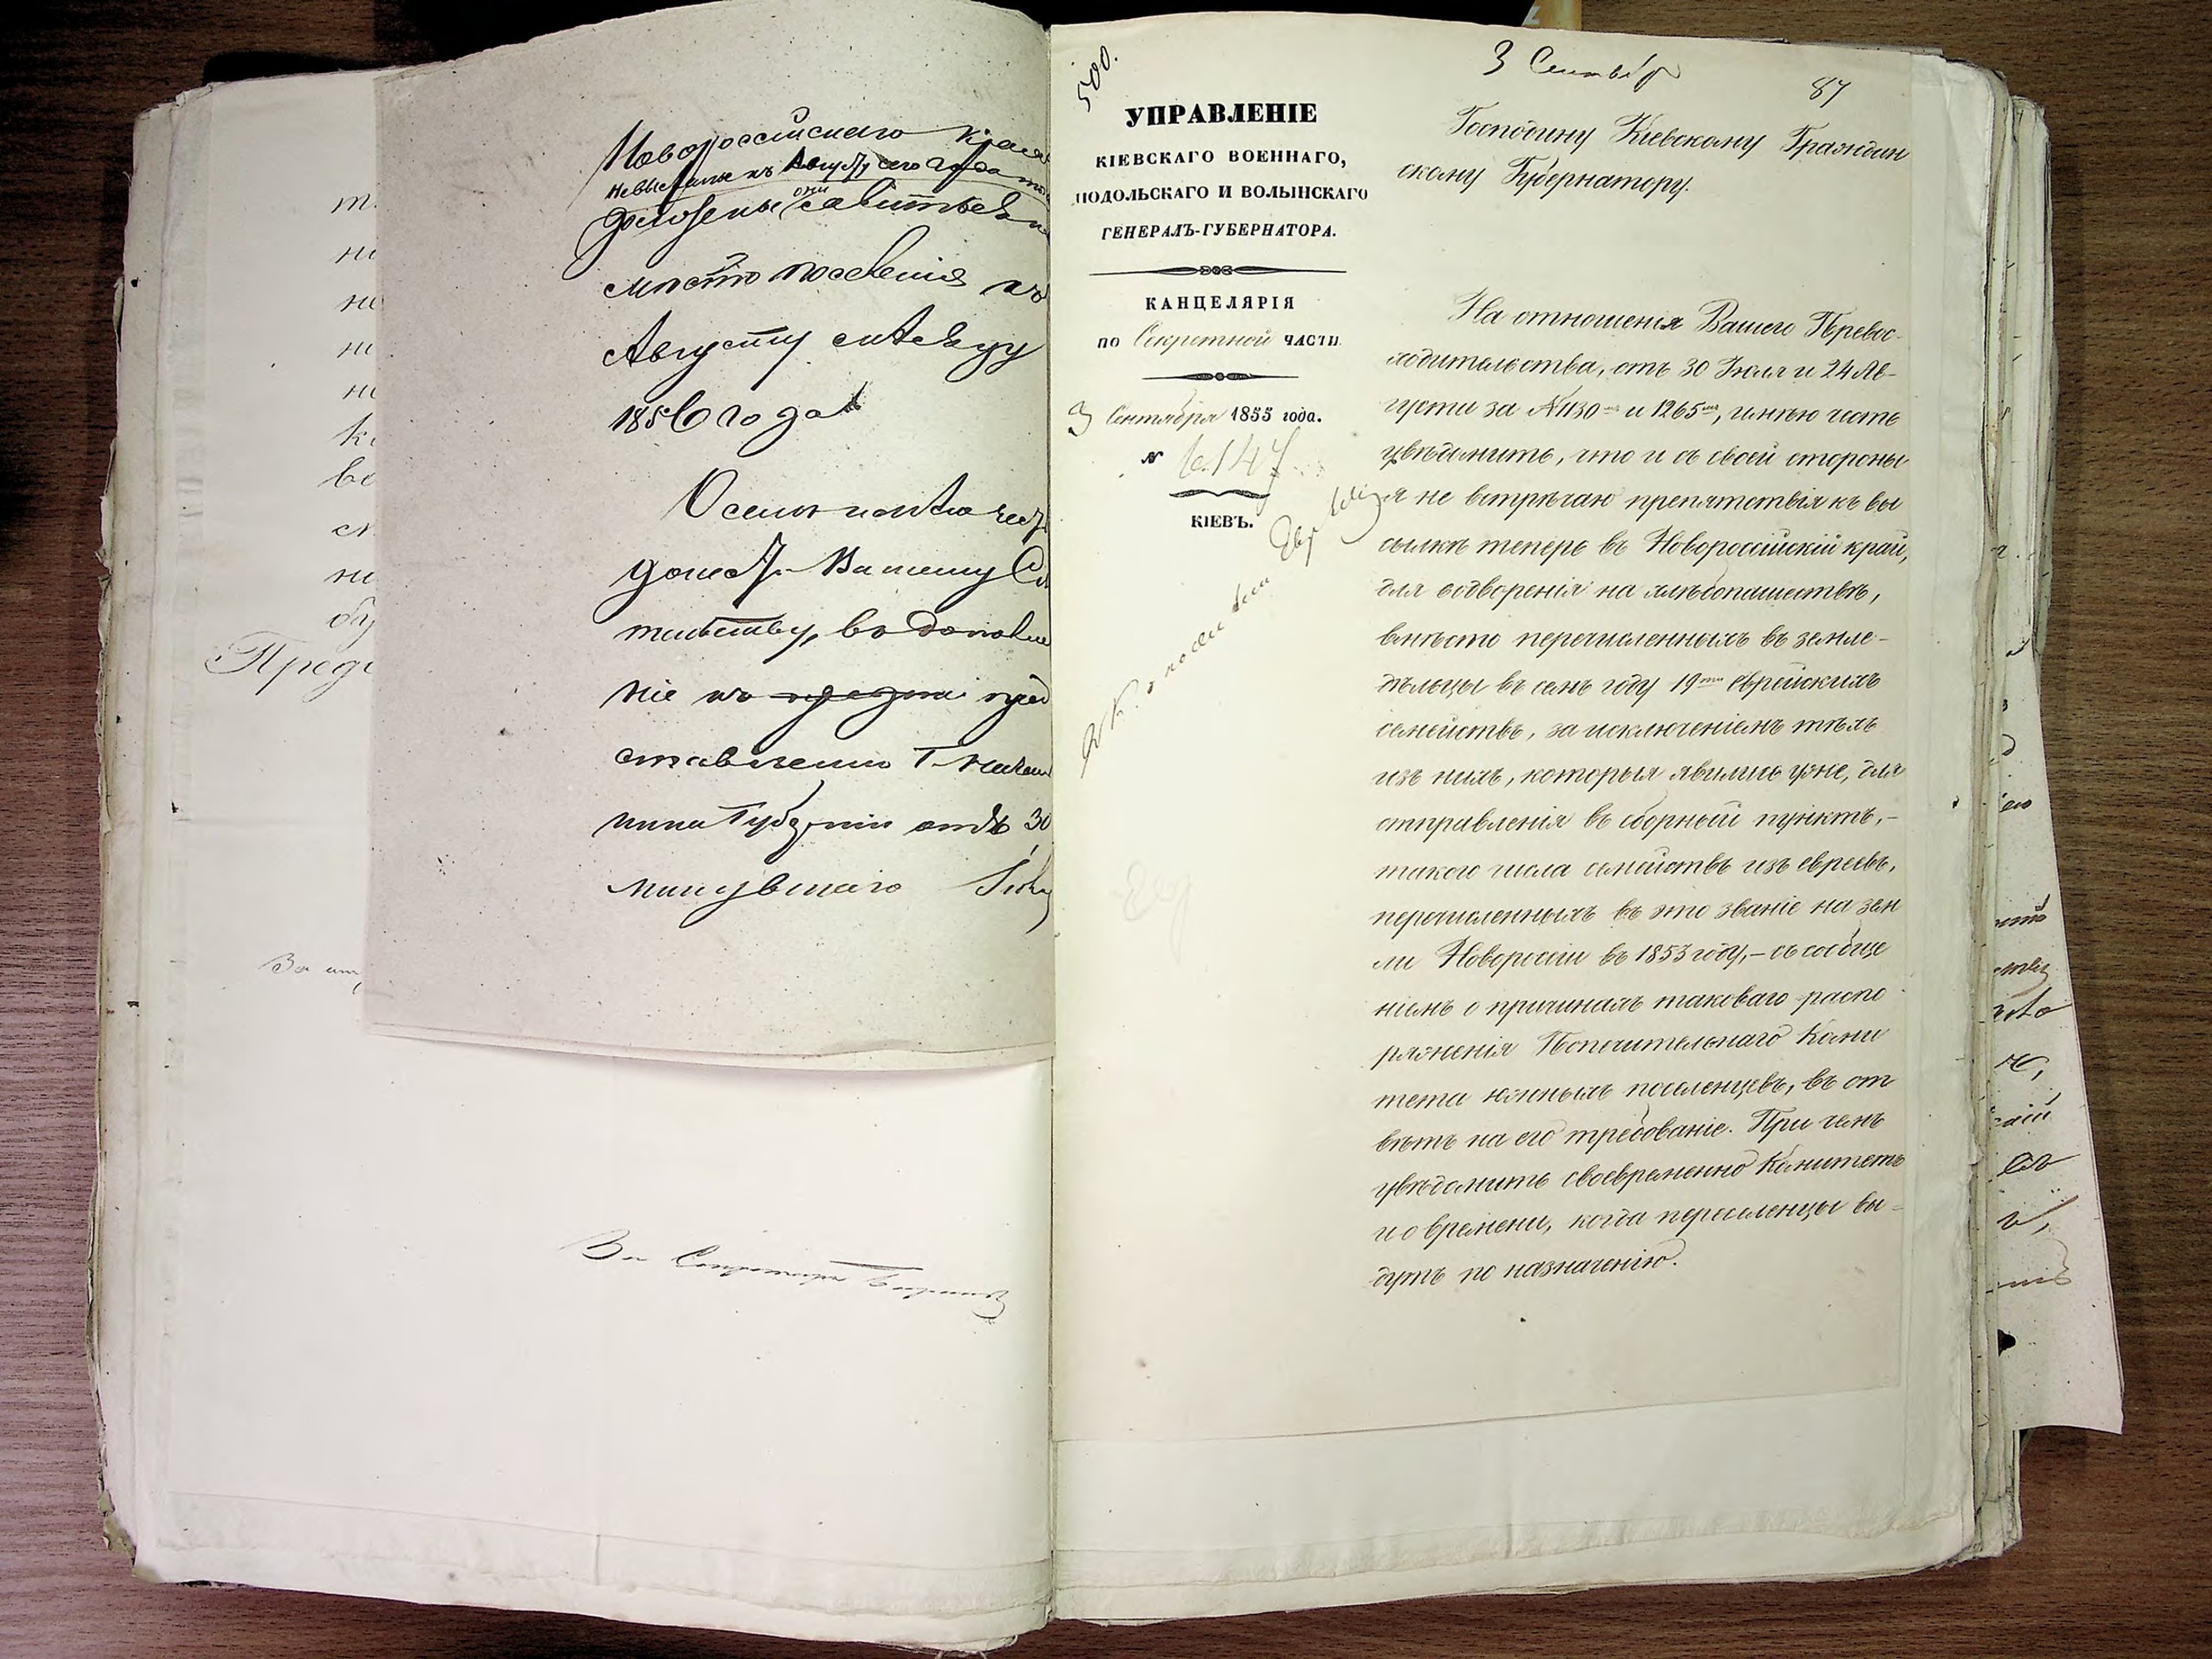 Новороссійскаго края
невысланы къ Августу сего года то
должны они явиться въ
мѣсто поселенія къ
Августу мѣсяцу
1856 года
О семъ имѣю честь
донести Вашему Сія
тельству, въ дополне
ніе къ пред
ставленію Г. Началь
ника Губерніи отъ 30
минувшаго Іюля
т.
ни
не
ни
ни
ко
во
сл
ни
бу
Предс
За Секретаря
500.
3 Сентября
87
УПРАВЛЕНІЕ
КІЕВСКАГО ВОЕННАГО,
ПОДОЛЬСКАГО И ВОЛЫНСКАГО
ГЕНЕРАЛЪ-ГУБЕРНАТОРА.
КАНЦЕЛЯРІЯ
по Секретной ЧАСТИ.
3 Сентября 1855 года.
№ 6147
КІЕВЪ.
Господину Кіевскому Граждан
скому Губернатору.
На отношенія Вашего Превос-
ходительства, отъ 30 Іюля и 24 Ав-
густа за №1130 и 1265, имѣю честь
увѣдомить, что и съ своей стороны
я не встрѣчаю препятствія къ вы
сылкѣ теперь въ Новороссійскій край,
для водворенія на хлѣбопашествѣ,
вмѣсто перечисленныхъ въ земле-
дѣльцы въ семъ году 19ти еврейскихъ
семействъ, за исключеніемъ тѣхъ
изъ нихъ, которыя явились уже, для
отправленія въ сборный пунктъ,-
такого числа семействъ изъ евреевъ,
перечисленныхъ въ это званіе на зем
ли Новороссіи въ 1853 году,- съ сообще
ніемъ о причинахъ таковаго распо
ряженія Попечительнаго Коми
тета южныхъ поселенцевъ, въ от
вѣтъ на его требованіе. При чемъ
увѣдомить своевременно Комитетъ
и о времени, когда переселенцы вы-
дутъ по назначенію.